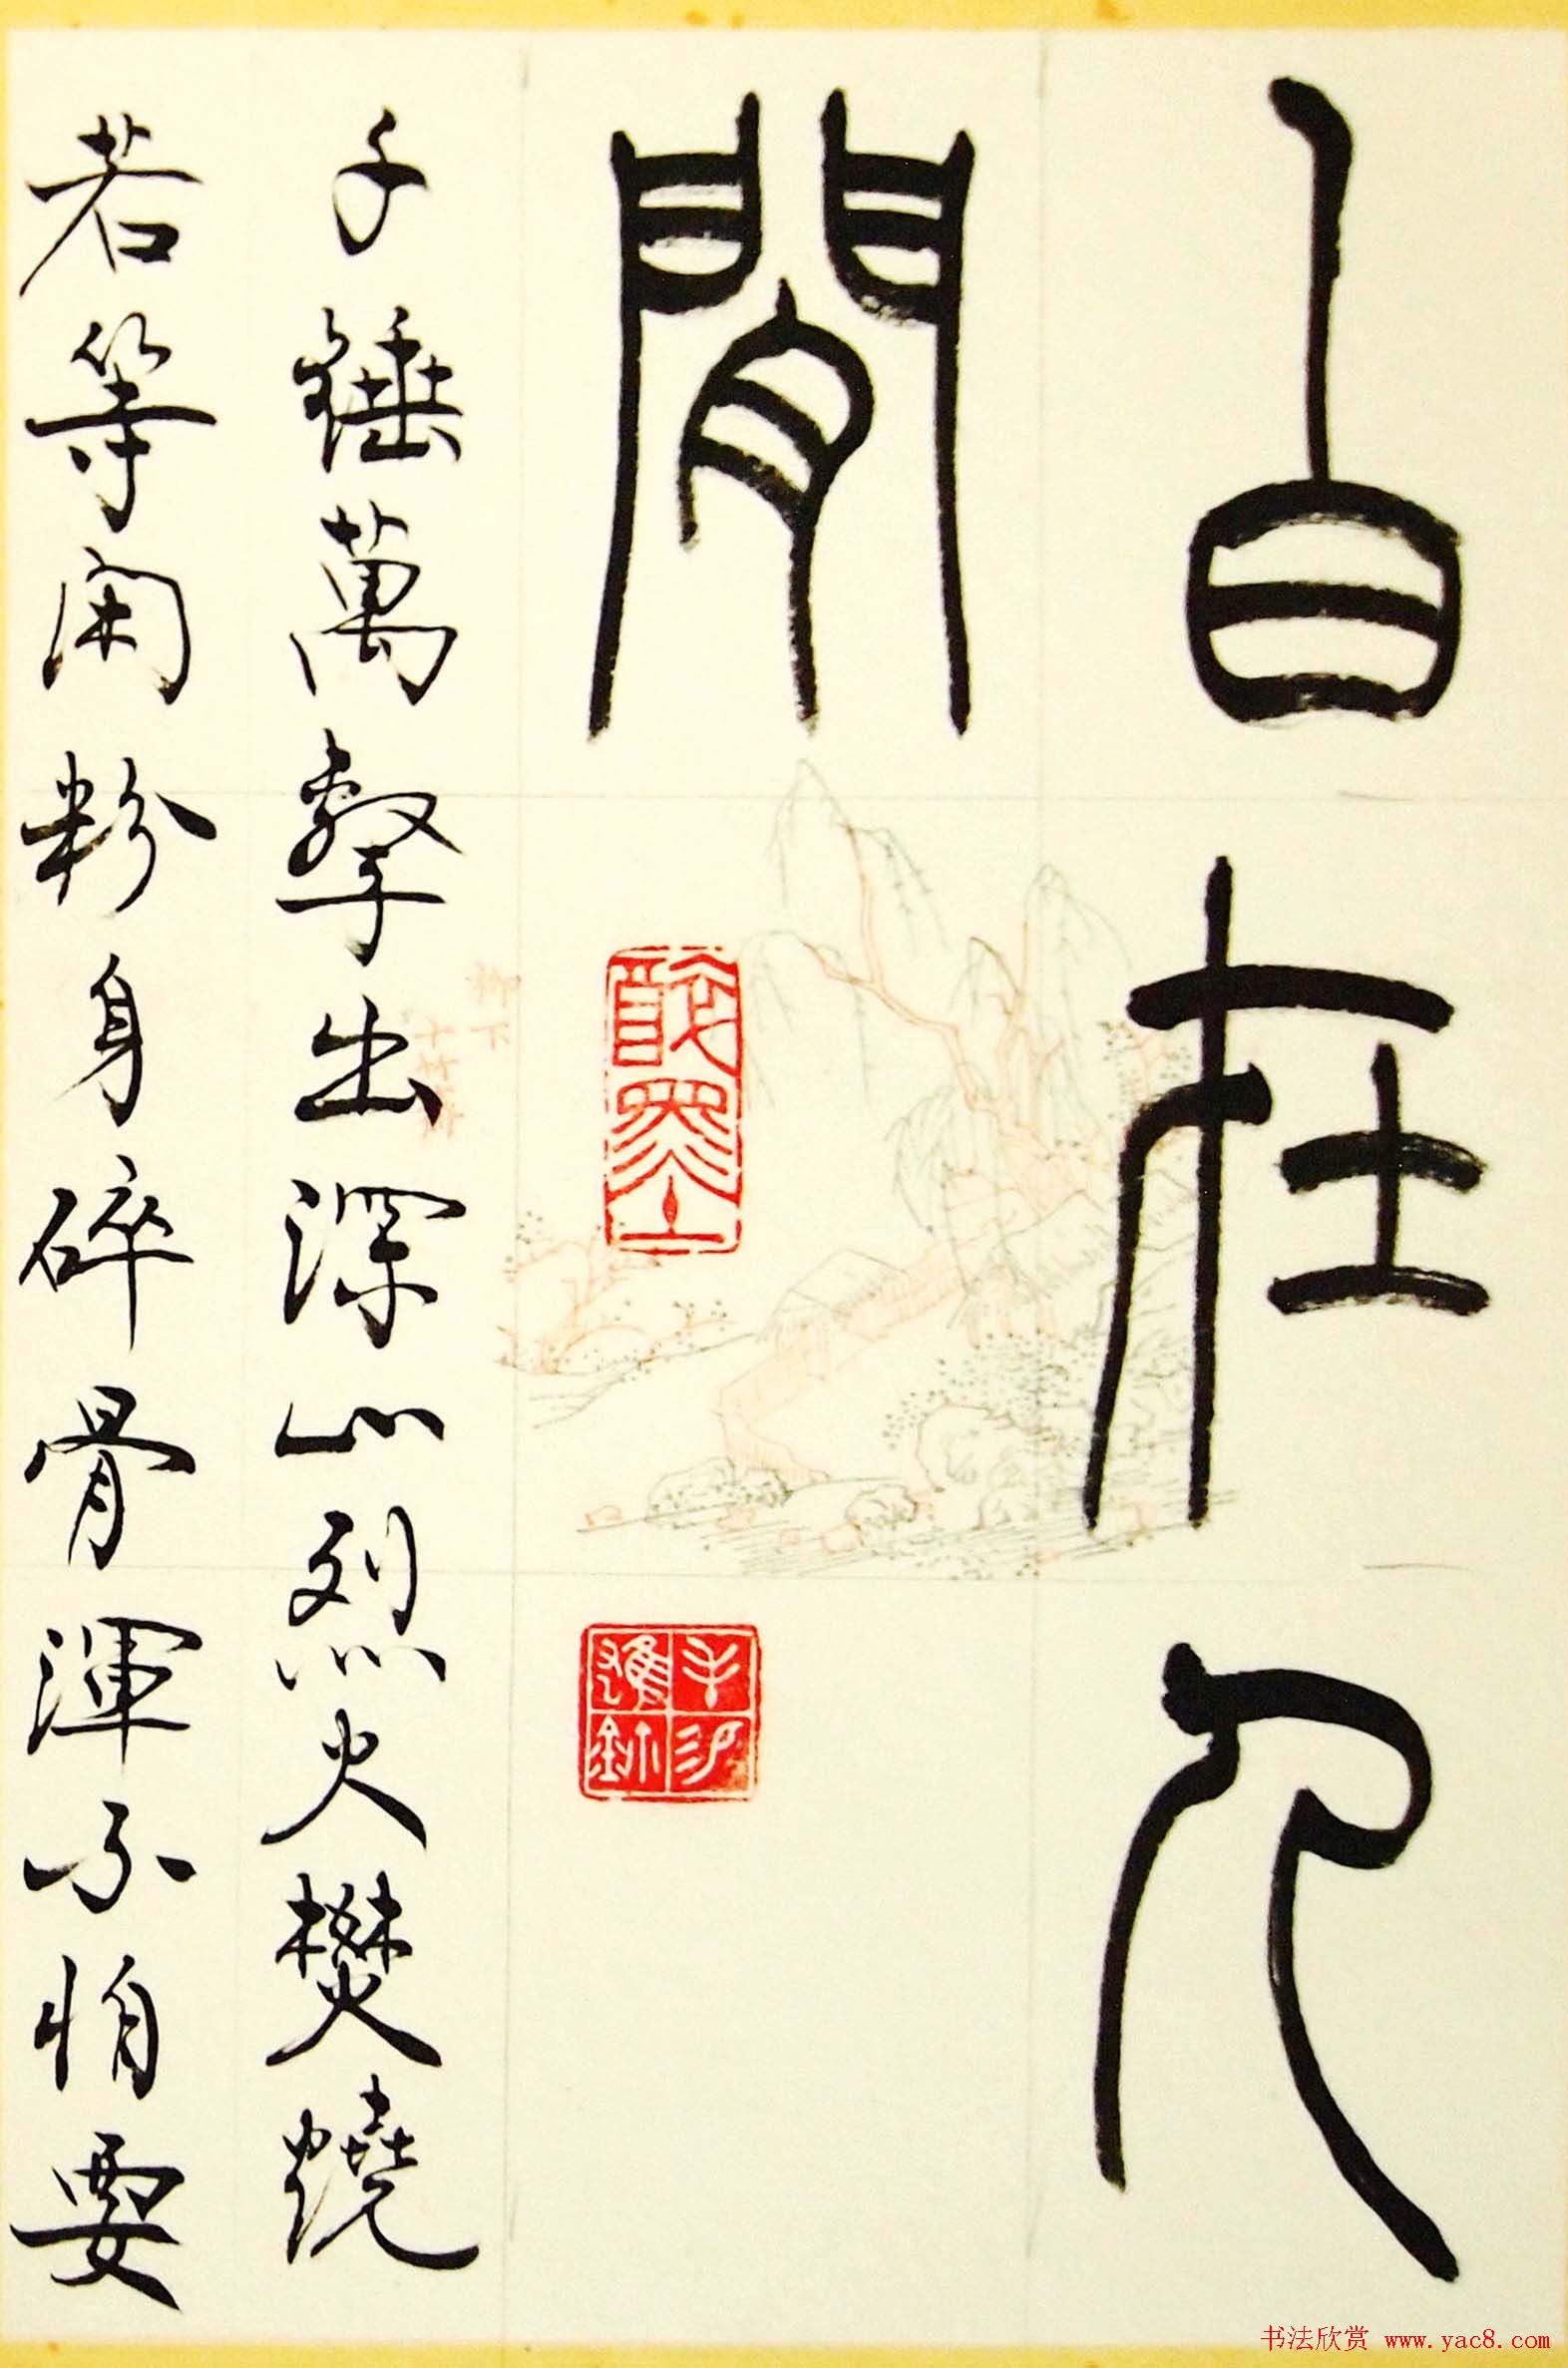 白在人
閒
千錘萬擊出深山烈火燓燒
若等閑粉身碎骨渾不怕要
书法欣赏 www.yac8.com